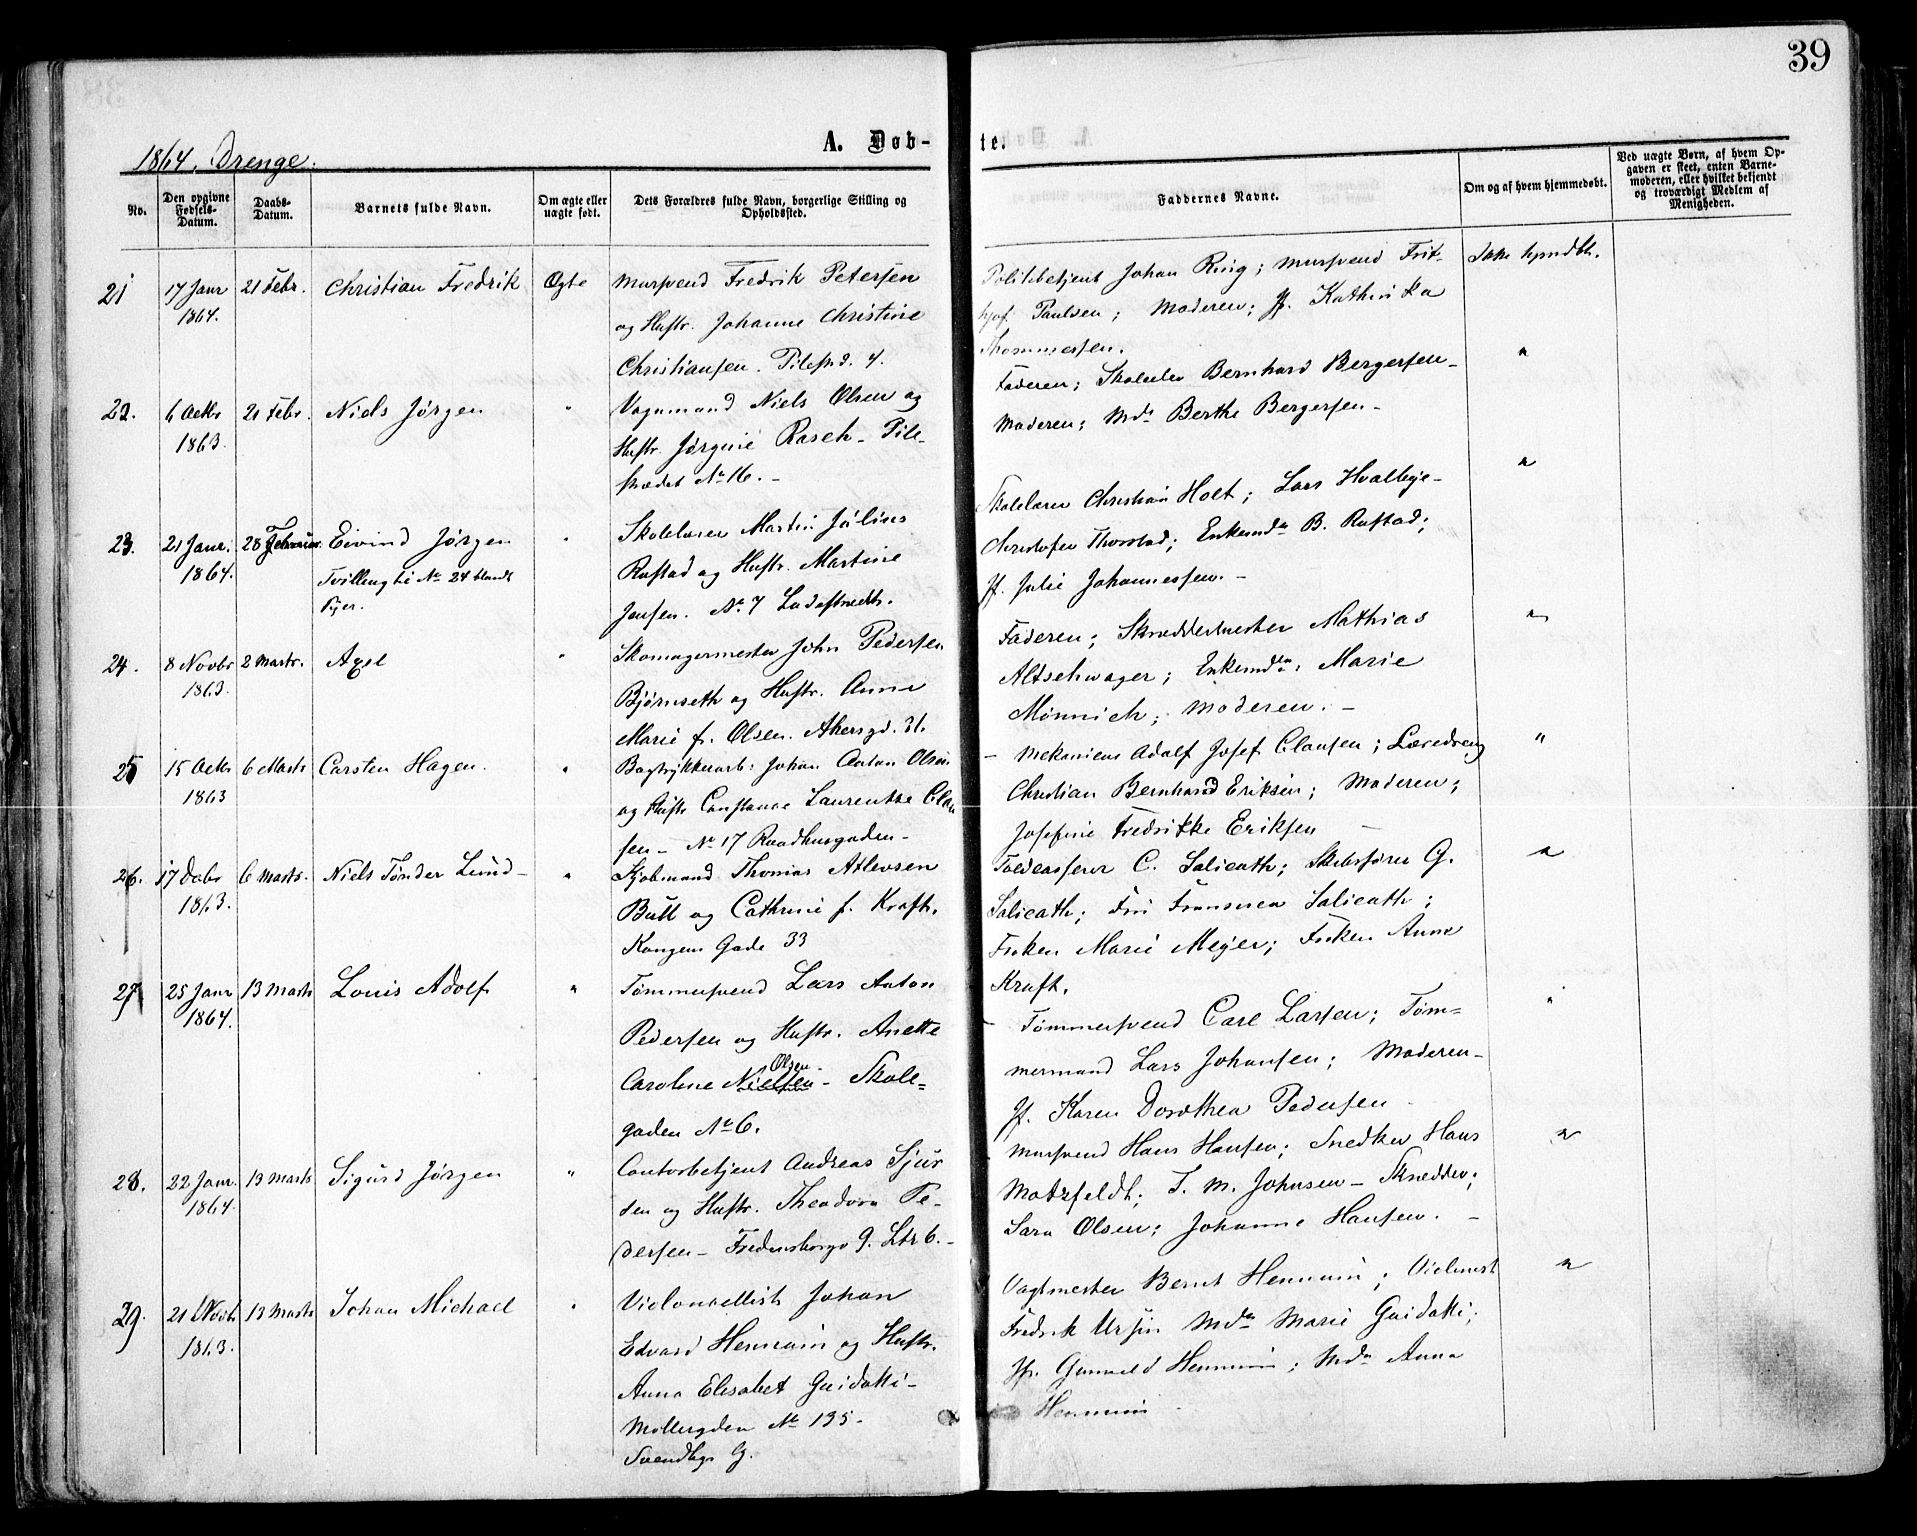 39
1864. Drenge.
A. Døb-
te.
No.
Den opgivne
Fødsels-
Datum.
Daabs-
Datum.
Barnets fulde Navn.
Om ægte eller
uægte født.
Dets Forældres fulde Navn, borgerlige Stilling og
Opholdssted.
Faddernes Navne.
Om og af hvem hjemmedøbt.
Ved uægte Børn, af hvem Op-
gaven er skeet, enten Barne-
moderen, eller hvilket bekjendt
og troværdigt Medlem af
Menigheden.
21
17 Janr
1864.
21 Febr.
Christian Fredrik
Ægte
Mursvend Fredrik Petersen
og Hustr. Johanne Christine
Christiansen. Pilestrd. 4.
Politibetjent Johan Ring; Mursvend Frit-
hjof Paulsen; Moderen; Jf. Kathinka
Thommesen.
Ikke hjmdbt.
22.
6 Octbr
1863.
21 Febr.
Niels Jørgen
"
Vognmand Niels Olsen og
Hustr. Jørgine Rasch - Pile-
strædet No 16. -
Faderen; Skoleelev Bernhard Bergersen -
Moderen; Mda Berthe Bergersen -
"
23.
21 Janr.
1864.
28 Februar
Eivind Jørgen
Tvilling til No 24 blandt
Piger.
"
Skolelærer Martin Julius
Rustad og Hustr. Martine
Jensen. No 7
Skolelærer Christian Holt; Lars Hvalbye -
Christofer Thorstad; Enkemda B. Rustad;
Jf. Julie Johannessen. -
"
24.
8 Novbr
1863.
2 Marts.
Axel
"
Skomagermester John Pedersen
Bjørnseth og Hustr. Anne
Marie f. Olsen. Akersgd. 31.
Faderen; Skræddermester Mathias
Altschwager; Enkemda. Marie
Mönnich; Moderen. -
"
25
15 Octbr
1863
6 Marts
Carsten Hagen.
"
Bogtrykkerarb. Johan Anton Olsen
og Hustr Constance Laurentze Clau
sen - No 17 Raadhusgaden -
- Mekanicus Adolf Josef Clausen; Læredreng
Christian Bernhard Eriksen; Moderen;
Josefine Fredrikke Eriksen -
"
26.
17 Decbr
1863.
6 Marts.
Niels Tønder Lund -
"
Kjøbmand Thomas Atlevsen
Bull og Cathrine f. Kraft.
Kongens Gade 33
Toldcasserer C. Salicath; Skibsfører G.
Salicath; Fru Fransisca Salicath;
Frøken Marie Mejer; Frøken Anne
Kraft.
"
27
25 Janr
1864.
13 Marts
Louis Adolf
"
Tømmersvend Lars Anton
Pedersen og Hustr. Anette
Olsen
Caroline Nielsen - Skole-
gaden No 6.
- Tømmersvend Carl Larsen; Tøm-
mermand Lars Johansen; Moderen -
Jf. Karen Dorothea Pedersen -
"
28.
22 Janr.
1864.
13 Marts
Sigurd Jørgen
"
Contorbetjent Andreas Sjur
sen og Hustr. Theodora Pe-
dersen - Fredensborgv 9. Ltr 6. -
Mursvend Hans Hansen; Snedker Hans
Motzfeldt; T. M. Johnsen - Skrædder;
Sara Olsen; Johanne Hansen. -
"
29.
21 Novbr
1863.
13 Marts
Johan Michael
"
Violoncellist Johan
Edvard Hennum og Hustr.
Anna Elisabet Guidotti -
Møllergden No 135 -
G.
Vagtmester Bernt Hennum;
Fredrik Ursin Mda Marie Guidotti;
Jfr. Gunnild Hennum; Mda Anna
Hennum
"